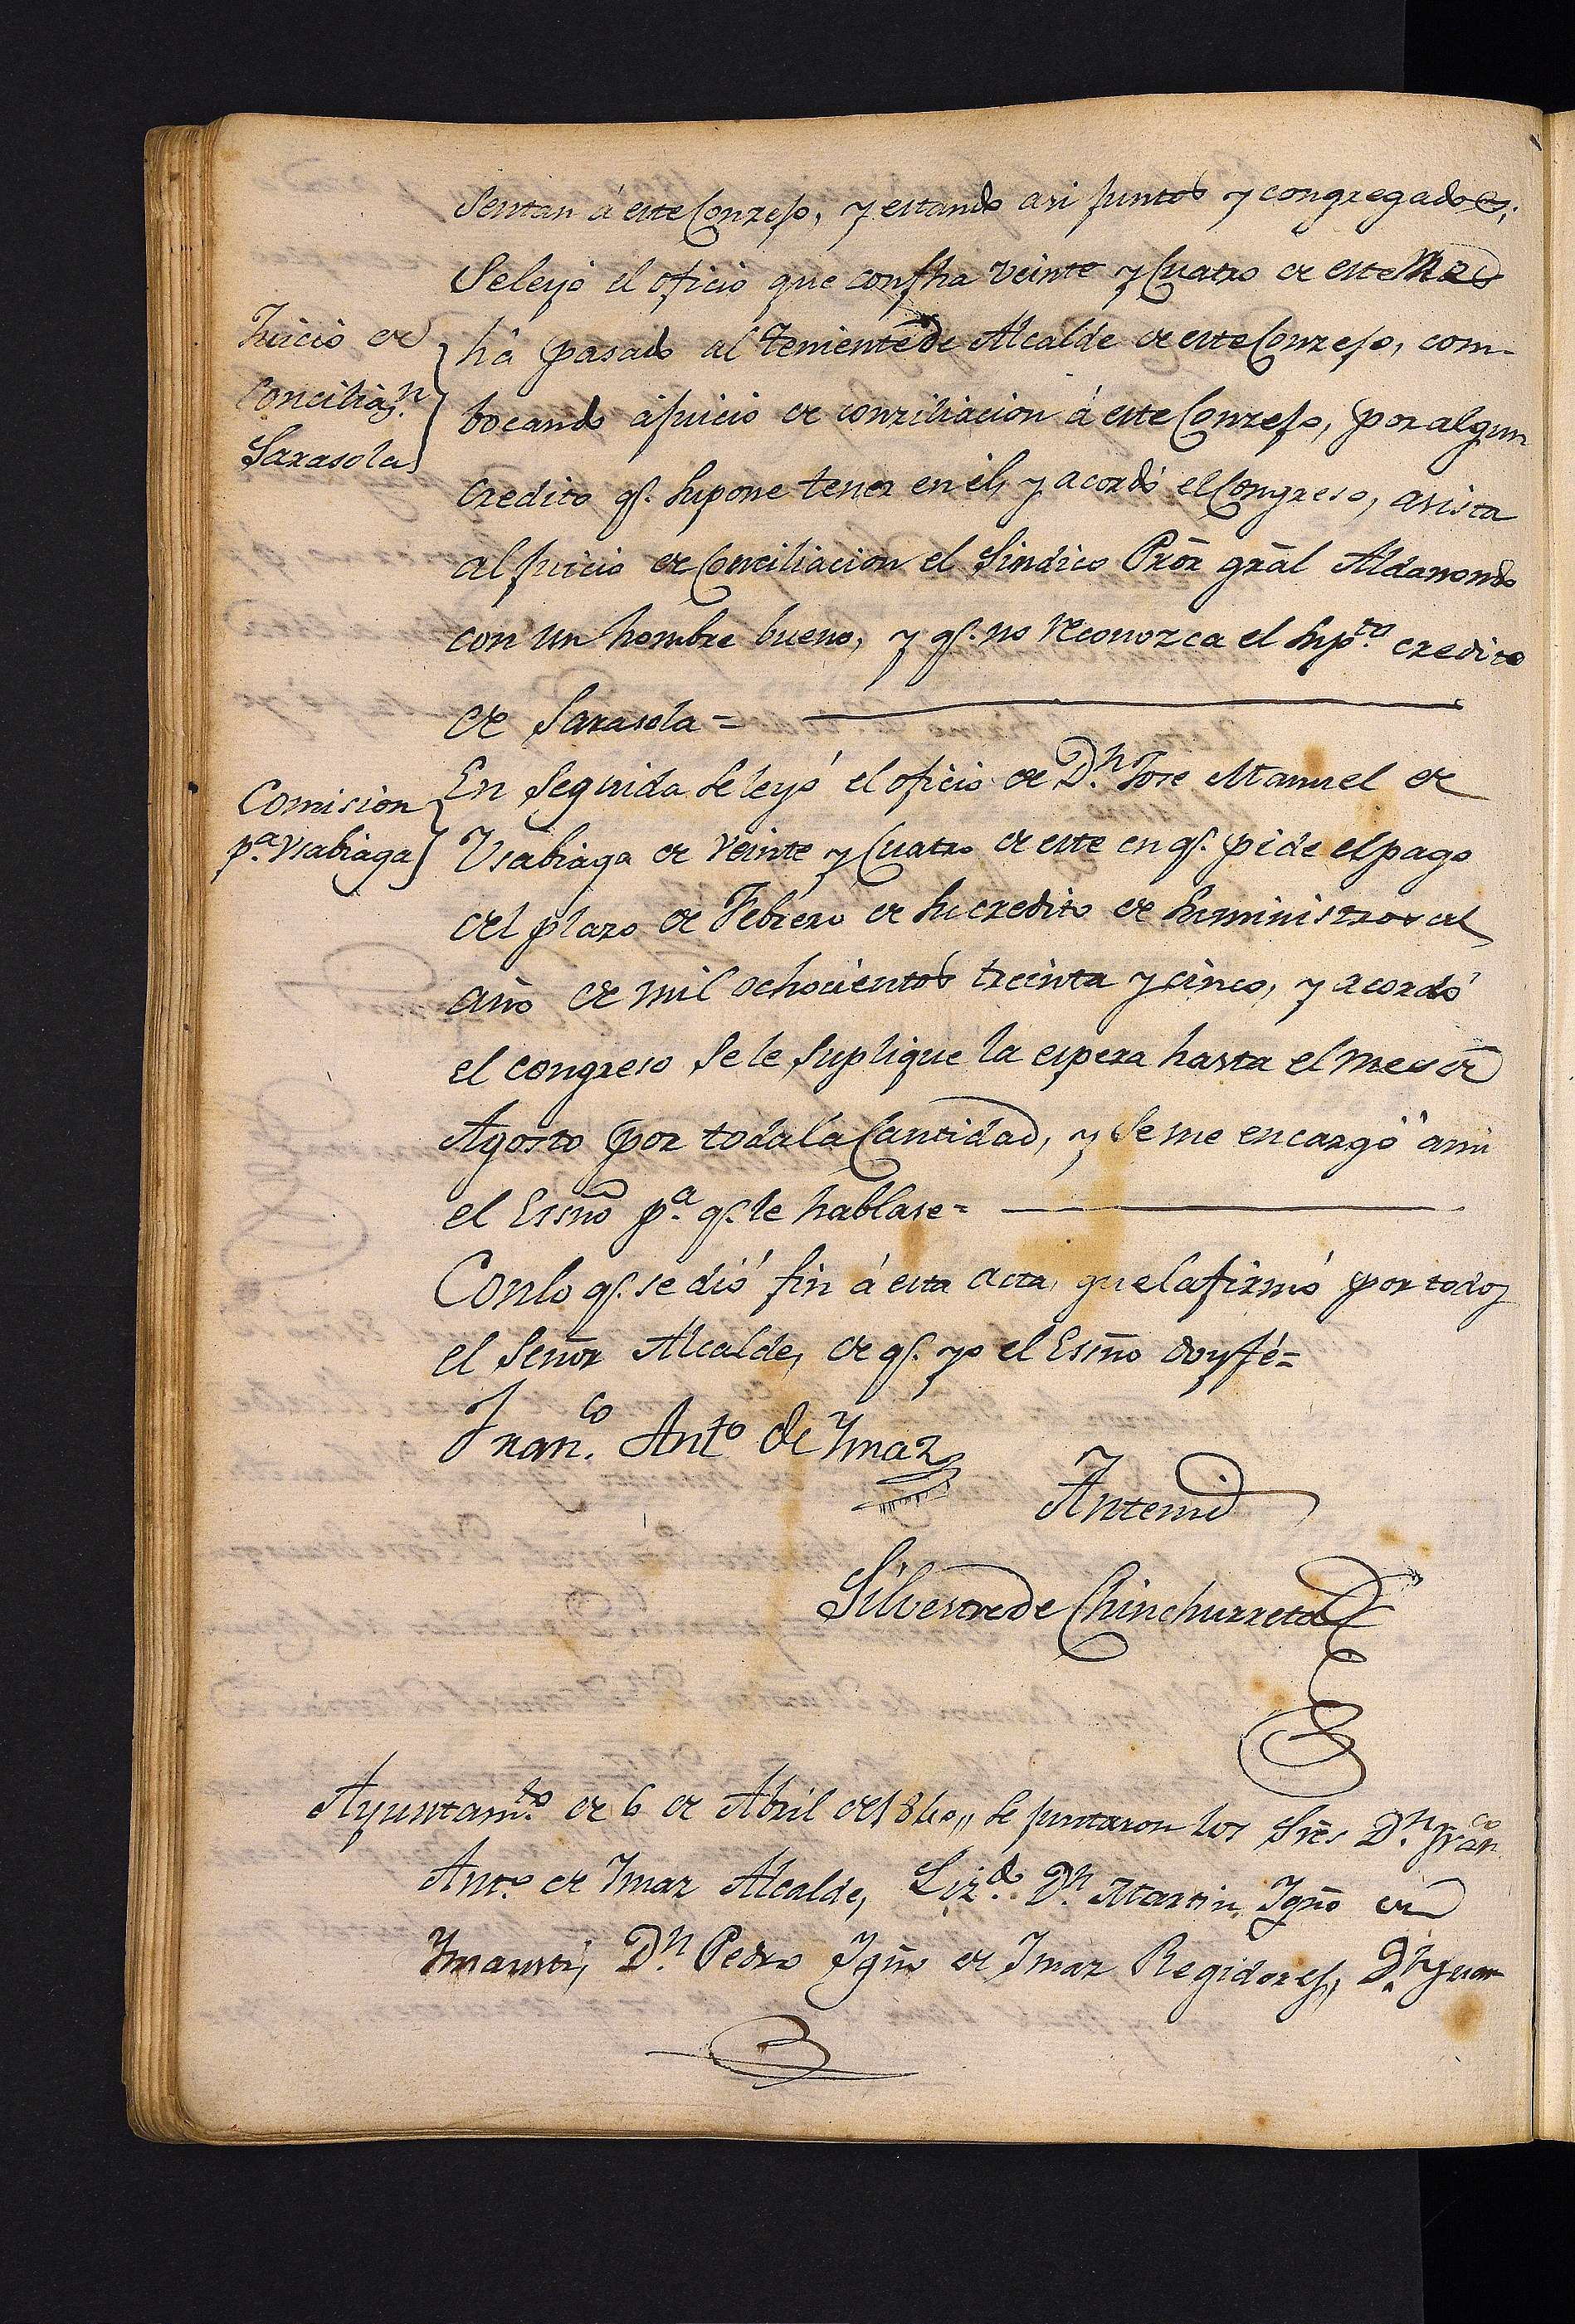 sentan á este Conzejo, y estando asi juntos y congregados;
Se leyó el oficio que con fha veinte y Cuatro de este Mes
Juicio de
ha pasado al Teniente de Alcalde de este Conzejo, com-
Conciliaⁿ.
bocando á juicio de conziliacion á este Conzejo, por algun
Sarasola
Credito qe. supone tener en él, y acordó el Congreso, asista
al juicio de Conciliacion el Sindico Pror gral Aldanondo
con un hombre bueno, y qe. no reconozca el supto. credito
de Sarasola =
En seguida se leyó el oficio de Dn. Jose Manuel de
Comision
pa. Usabiaga
Usabiaga de veinte y Cuatro de este en qe. pide el pago
del plazo de Febrero de su credito de suministros al
año de mil ochocientos treinta y cinco, y acordó
el congreso se le suplique la espera hasta el mes de
Agosto por toda la Cantidad, y se me encargó á mi
el Essno pa. qe. le hablase =
Con lo qe. se dió fin á esta acta, que la firmó por todos
el Señor Alcalde, de qe. yo el Essno doy fé =
Franco. Anto de Ymaz
Antemi
Silvestre de Chinchurreta
Ayuntamto. de 6 de Abril de 1840,, se juntaron los Sres Dn. Franco
Anto. de Ymaz Alcalde, Lizdo. Dn. Martin Igno de
Ymausti, Dn. Pedro Igno de Imaz Regidores, Dn. Juan